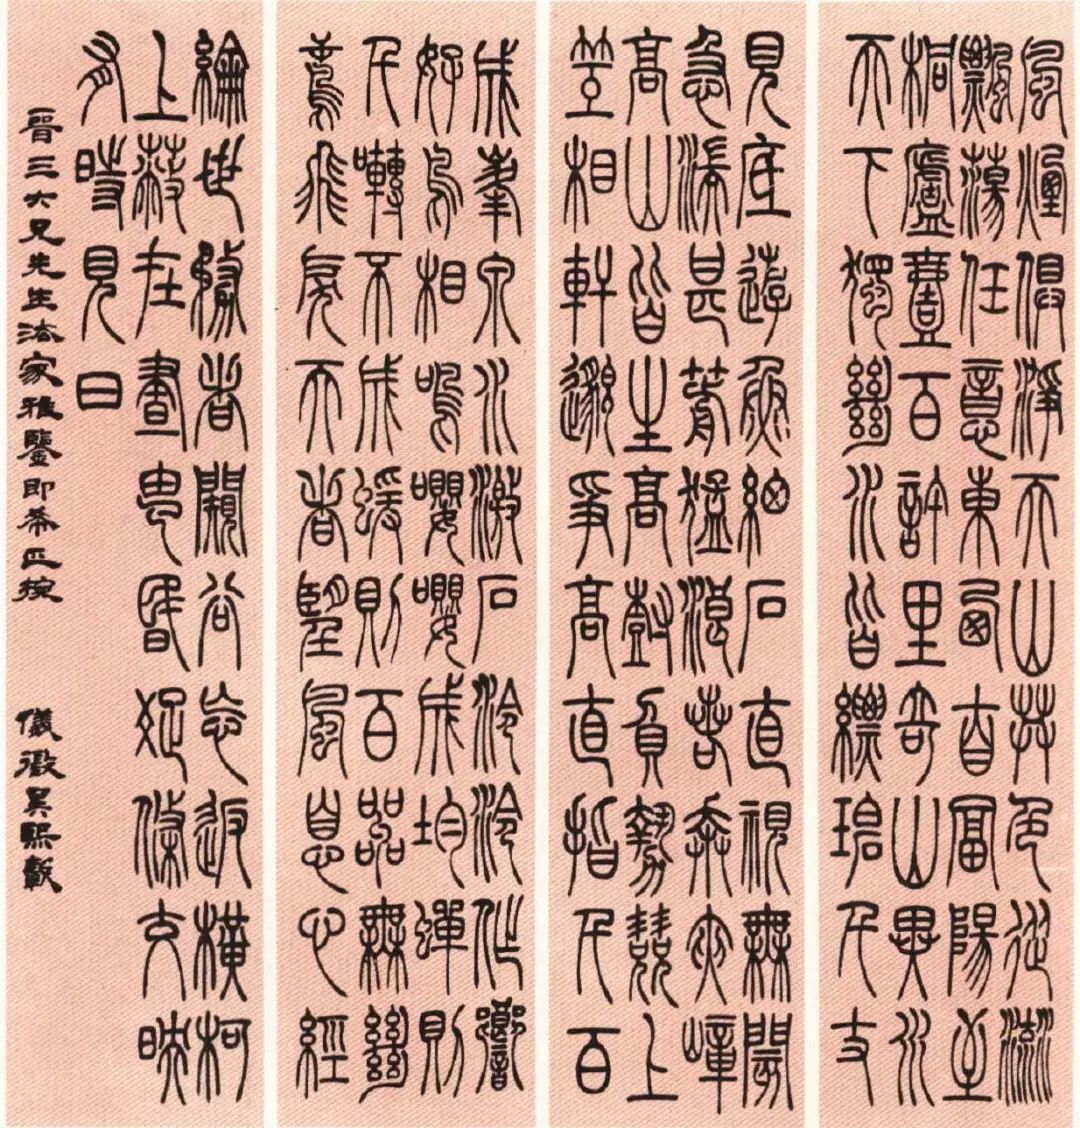 風煙俱淨天山共色從流
飄蕩任意東西自富陽至
桐廬壹百許里奇山異水
天下獨絕水皆縹碧千丈
見底遊魚細石直視無閡
急湍甚箭猛浪若奔夾嶂
高山皆生高樹負勢競上
笠相軒邈爭高直指千百
成峯泉水激石泠泠作響
好鳥相鳴嚶嚶成均蟬則
千囀不成蝯則百嘂無絕
鳶飛戾天者望風息心經
綸世務者闚谷忘返橫柯
上蔽在晝昏疏條交映
有時見日
晉三大兄先生法家雅鑒即希正捥
儀徵吳熙載